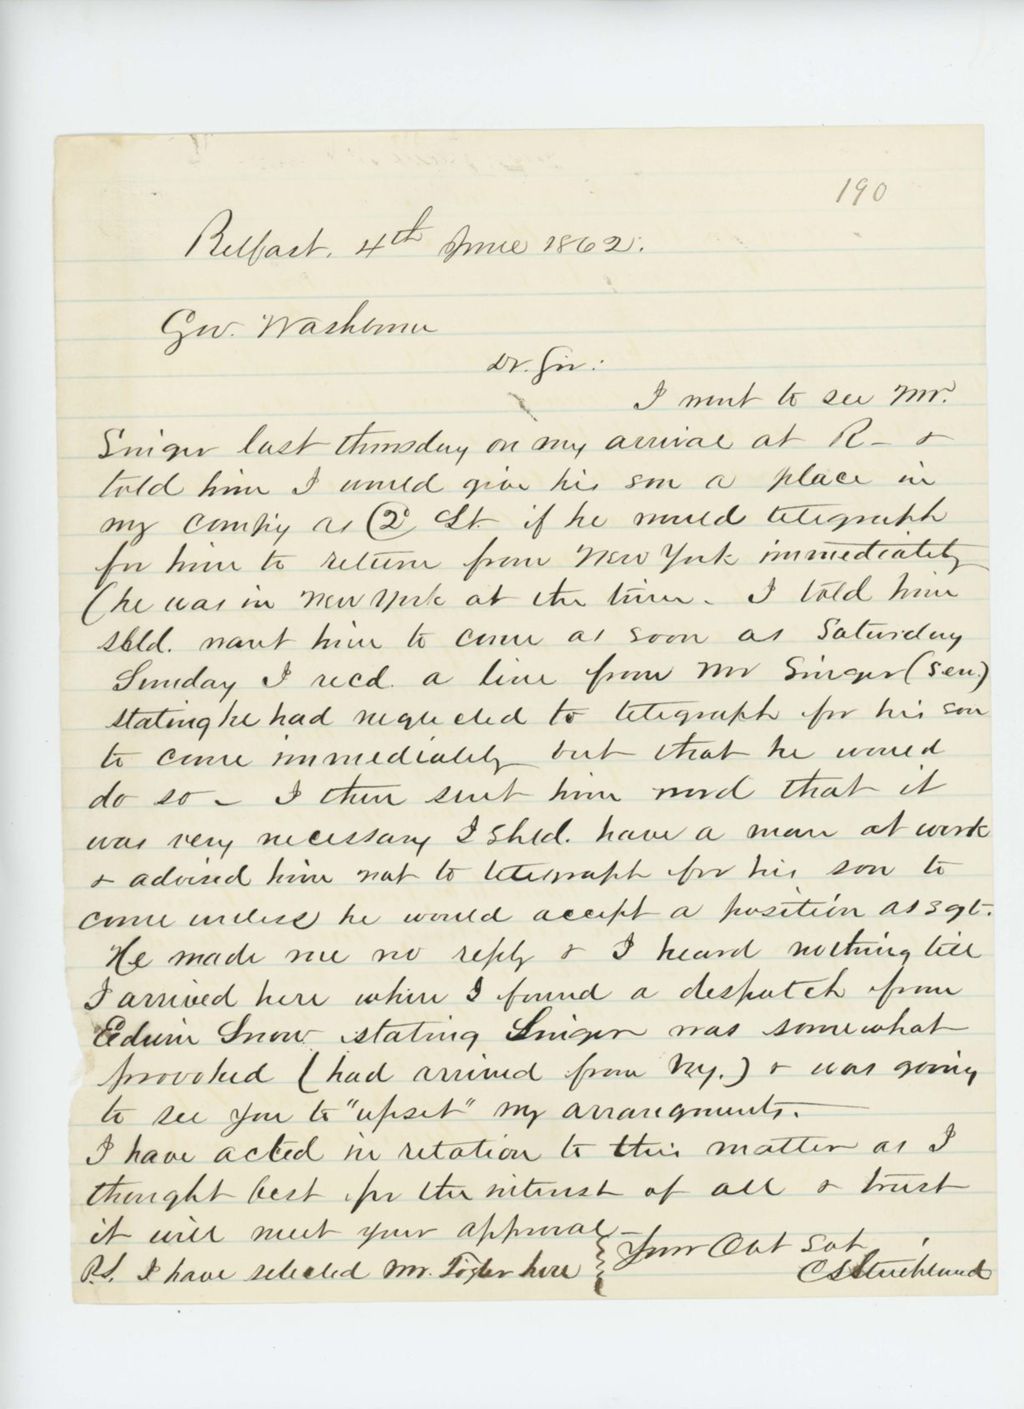 190
Belfast. 4th June 1862.
Gov. Washburn
Dr. Sir:
I went to see Mr.
Singer last thursday on my arrival at R- &
told him I would give his son a place in
my Comp'y as (2d Lt. if he would telegraph
for him to return from New York immediately
(he was in New York at the time. I told him
shld. want him to come as soon as Saturday
Sunday I recd. a line from Mr Singer (Sen)
stating he had neglected to telegraph for his son
to come immediately but that he would
do so - I then sent him word that it
was very necessary I shld. have a man at work
& advised him not to telegraph for his son to
come unless he would accept a position as sgt.
He made me no reply & I heard nothing till
I arrived here where I found a despatch from
Edwin Snow stating Singer was somewhat
provoked (had arrived from N.y.) & was going
to see you to "upset" my arrangments.
I have acted in relation to this matter as I
thought best for the interest of all & trust
it will meet your approval -
Your Obt Svt
P.S. I have selected Mr. here
C S Strickland